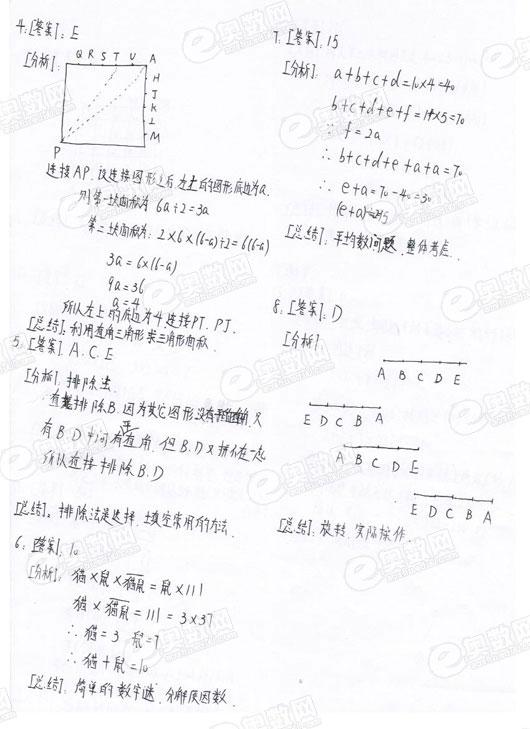 4:[答案]:E
[分析]:
Q R S T U A
H
J
K
L
M
P
连接AP.设连接图形之后左上的图形底边为a.
则第一块面积为 6a÷2=3a
第二块面积为: 2×6×(6-a)÷2=6(6-a)
3a=6×(6-a)
9a=36
a=4
所以左上的底边为4.连接PT.PJ.
[总结]:利用直角三角形求三角形面积.
5:[答案].A.C.E
[分析].排除法
排除B.因为其它图形没有直角,只
有B.D中间有直角,但B.D又拼不在一起
所以直接排除B.D
[总结]。排除法是选择,填空常用的方法.
6:[答案]:10
[分析]:猫×鼠×猫鼠=鼠×111
猫×猫鼠=111=3×37
∴猫=3 鼠=7
∴猫+鼠=10
[总结]:简单的数字谜.分解质因数.
7:[答案]:15
[分析]: a+b+c+d=10×4=40
b+c+d+e+f=14×5=70
∵ f=2a
∴ b+c+d+e+a+a=70
∴ e+a=70-40=30
(e+a)÷2=15
[总结]:平均数问题.整体考点.
8:[答案]:D
[分析]
A B C D E
E D C B A
A B C D E
E D C B A
[总结]:旋转.实际操作.
e奥数网